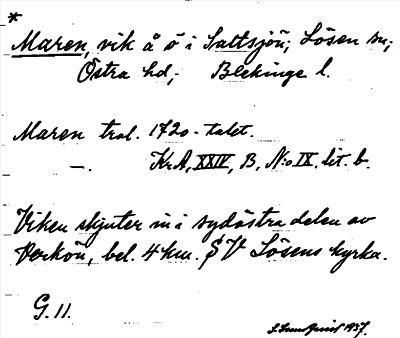 *
Maren, vik å ö i Saltsjön, Lösen sn,
Östra hd, Blekinge l.
Maren tral. 1720-talet.
—. KrA, XXIV, B, N:o IX. lit. b.
Viken skjuter in i sydöstra delen av
Verkön, bel. 4 km. SV Lösens kyrka.
G. 11.
1937.